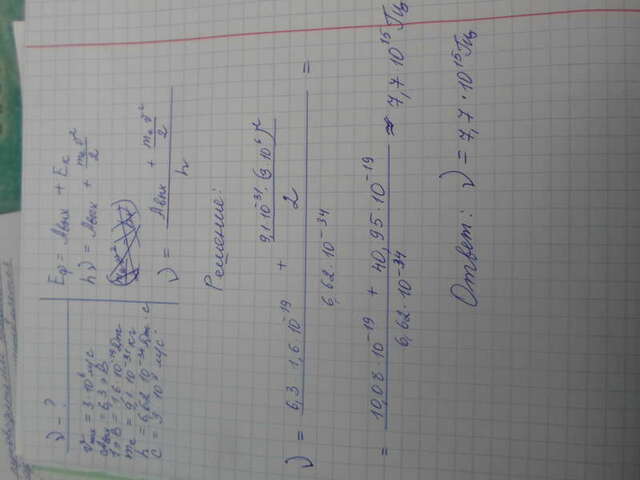 ν - ?
v_max = 3·10⁶ м/с
Aвых = 6,3 эВ
1 эВ = 1,6·10⁻¹⁹ Дж
mₑ = 9,1·10⁻³¹ кг
h = 6,62·10⁻³⁴ Дж·с
c = 3·10⁸ м/с
Eф = Aвых + Eк
hν = Aвых + mₑv²/2
ν = (Aвых + mₑv²/2)/h
Решение:
ν = (6,3·1,6·10⁻¹⁹ + 9,1·10⁻³¹·(3·10⁶)²/2)/(6,62·10⁻³⁴) =
= (10,08·10⁻¹⁹ + 40,95·10⁻¹⁹)/(6,62·10⁻³⁴) ≈ 7,7·10¹⁵ Гц
Ответ: ν = 7,7·10¹⁵ Гц